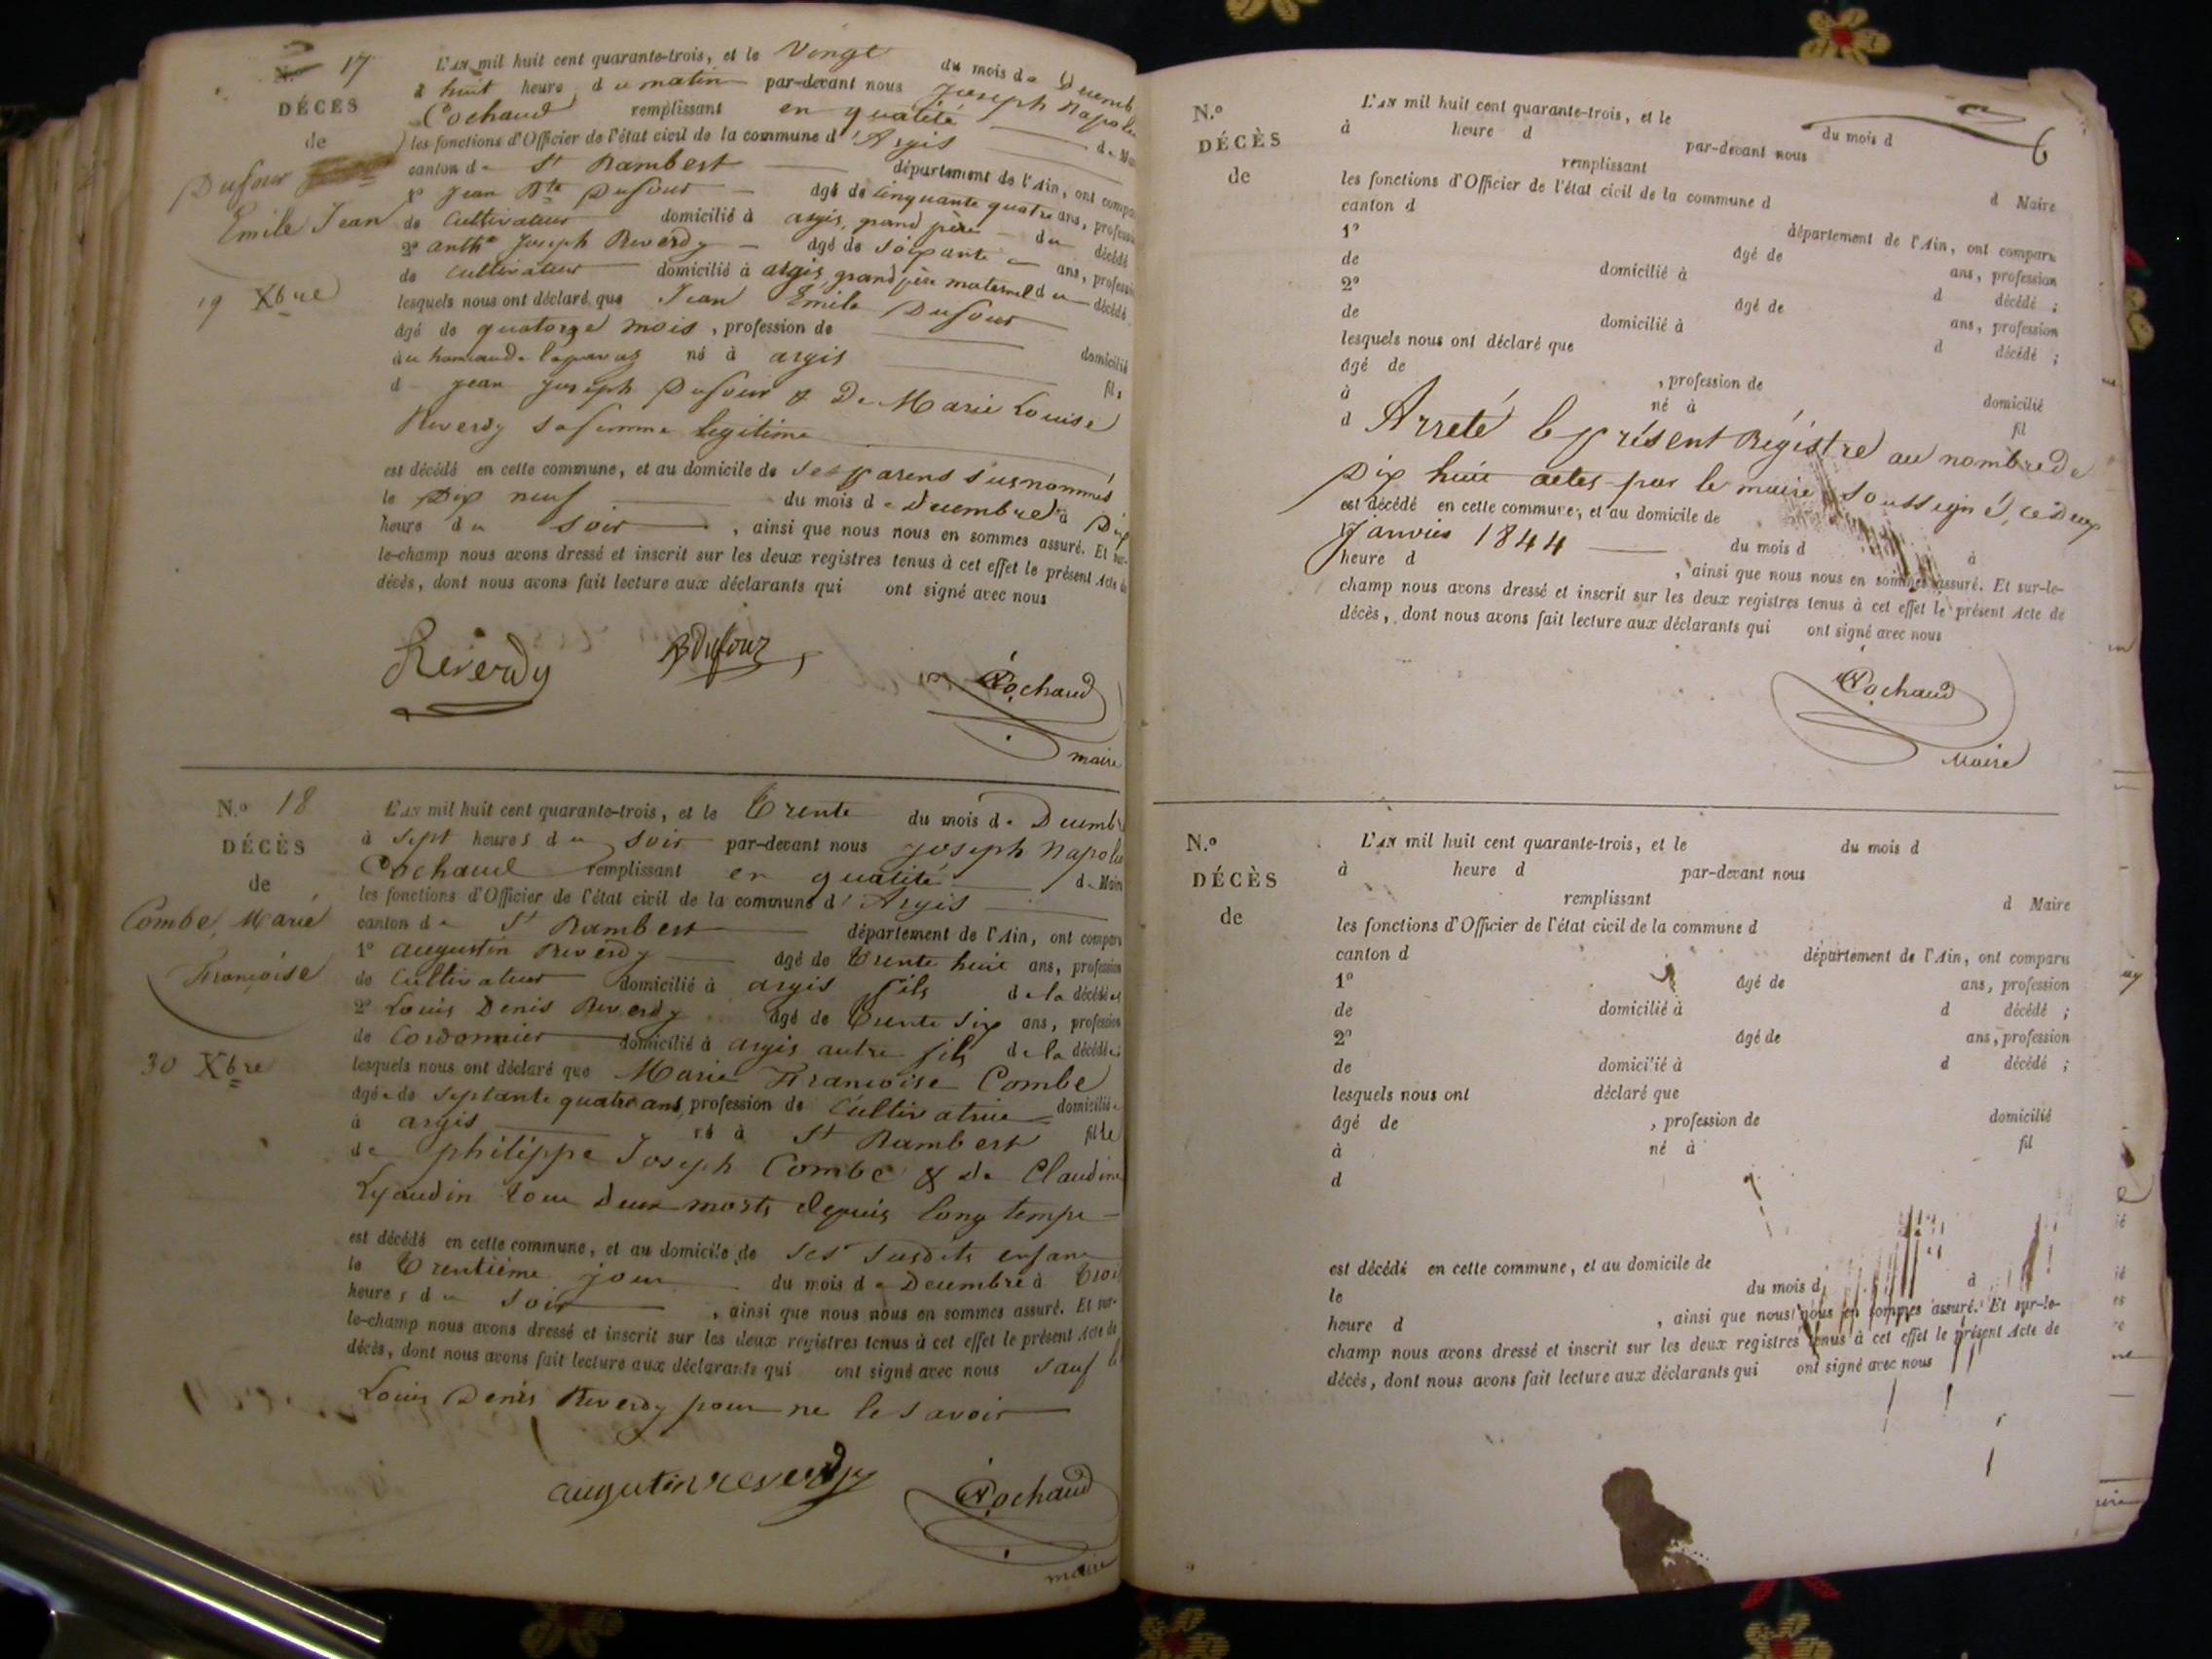 N.o 17
DÉCÈS
de
Dufour
Emile Jean
19 Xbre
L'AN mil huit cent quarante-trois, et le Vingt du mois de Decemb
à huit heure du matin par-devant nous Joseph Napole
Cochaud remplissant en qualité de Mai
les fonctions d'Officier de l'état civil de la commune d'Argis
canton de St Rambert département de l'Ain, ont compa
1o Jean Bte Dufour âgé de Cinquante quatre ans, professi
de Cultivateur domicilié à argis, grand père du décédé
2o anthe Joseph Reverdy âgé de Soixante ans, professi
de Cultivateur domicilié à argis, grand père maternel du décédé
lesquels nous ont déclaré que Jean Emile Dufour
âgé de quatorze mois, profession de domicilié
au hameau de né à argis fils
d Jean Joseph Dufour & De Marie Louise
Reverdy sa femme legitime
est décédé en cette commune, et au domicile de ses parens susnommés
le Dix neuf du mois de Decembre à Dix
heure du soir, ainsi que nous nous en sommes assuré. Et sur-
le-champ nous avons dressé et inscrit sur les deux registres tenus à cet effet le présent Acte de
décès, dont nous avons fait lecture aux déclarants qui ont signé avec nous
Reverdy BDufour Cochaud
maire
N.o 18
DÉCÈS
de
Combe, Marie
Françoise
30 Xbre
L'AN mil huit cent quarante-trois, et le Trente du mois de Decemb
à Sept heures du soir par-devant nous Joseph Napole
Cochaud remplissant en qualité de Maire
les fonctions d'Officier de l'état civil de la commune d'Argis
canton de St Rambert département de l'Ain, ont comparu
1o Augustin Reverdy âgé de Trente huit ans, profession
de Cultivateur domicilié à argis fils de la décédée
2o Louis Denis Reverdy âgé de Trente Six ans, profession
de Cordonnier domicilié à argis autre fils de la décédée
lesquels nous ont déclaré que Marie Francoise Combe
âgée de Septante quatre ans, profession de Cultivatrice domiciliée
à argis né à St Rambert fille
de philippe Joseph Combe & de Claudine
tous Deux morts Depuis long temps
est décédé en cette commune, et au domicile de ses susdits enfans
le Trentième jour du mois de Decembre à Trois
heures du soir, ainsi que nous nous en sommes assuré. Et sur-
le-champ nous avons dressé et inscrit sur les deux registres tenus à cet effet le présent Acte de
décès, dont nous avons fait lecture aux déclarants qui ont signé avec nous sauf le
Louis Denis Reverdy pour ne le savoir
augustin reverdy Cochaud
maire
6
N.o
DÉCÈS
de
L'AN mil huit cent quarante-trois, et le du mois d
à heure d par-devant nous
remplissant d Maire
les fonctions d'Officier de l'état civil de la commune d
canton d département de l'Ain, ont comparu
1o âgé de ans, profession
de domicilié à d décédé ;
2o âgé de ans, profession
de domicilié à d décédé ;
lesquels nous ont déclaré que
âgé de , profession de domicilié
à né à fil
d
Arreté le présent Régistre au nombre de
Dix huit actes par le maire soussigné, ce Deux
Janvier 1844
est décédé en cette commune, et au domicile de
le du mois d à
heure d , ainsi que nous nous en sommes assuré. Et sur-le-
champ nous avons dressé et inscrit sur les deux registres tenus à cet effet le présent Acte de
décès, dont nous avons fait lecture aux déclarants qui ont signé avec nous
Cochaud
Maire
N.o
DÉCÈS
de
L'AN mil huit cent quarante-trois, et le du mois d
à heure d par-devant nous
remplissant d Maire
les fonctions d'Officier de l'état civil de la commune d
canton d département de l'Ain, ont comparu
1o âgé de ans, profession
de domicilié à d décédé ;
2o âgé de ans, profession
de domicilié à d décédé ;
lesquels nous ont déclaré que
âgé de , profession de domicilié
à né à fil
d
est décédé en cette commune, et au domicile de
le du mois d à
heure d , ainsi que nous nous en sommes assuré. Et sur-le-
champ nous avons dressé et inscrit sur les deux registres tenus à cet effet le présent Acte de
décès, dont nous avons fait lecture aux déclarants qui ont signé avec nous